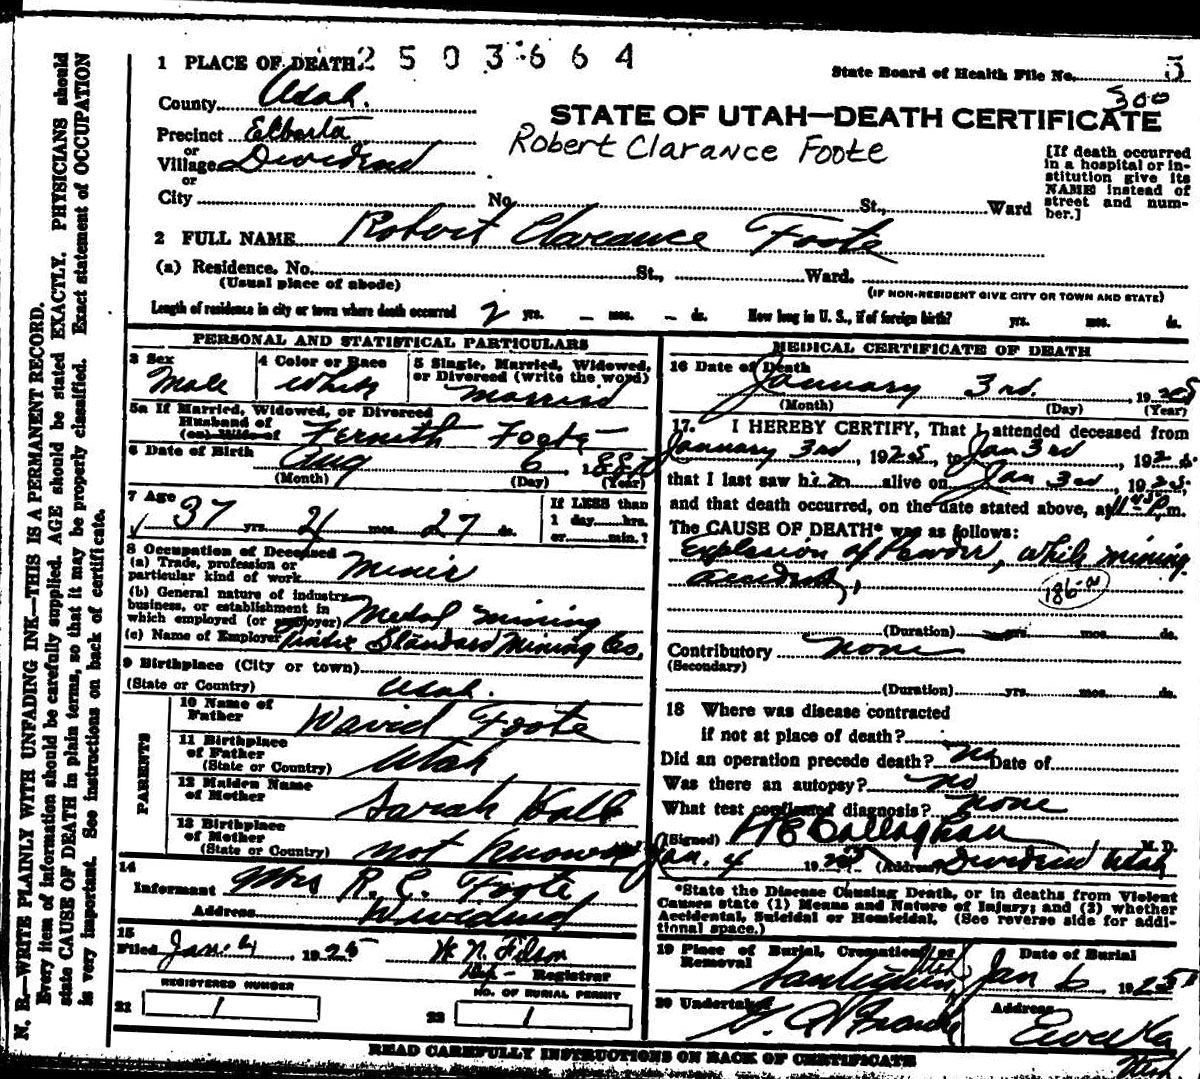 1 PLACE OF DEATH 2 5 0 3 6 6 4
State Board of Health File No. 5
300
County Utah.
STATE OF UTAH—DEATH CERTIFICATE
Precinct Elberta
Robert Clarance Foote
or
Village Dividend
or
City No. St., Ward
[If death occurred
in a hospital or in-
stitution give its
NAME instead of
street and num-
ber.]
2 FULL NAME Robert Clarance Foote
(a) Residence. No. St., Ward.
(Usual place of abode)
(IF NON-RESIDENT GIVE CITY OR TOWN AND STATE)
Length of residence in city or town where death occurred 2 yrs. – mos. – ds. How long in U. S., if of foreign birth? yrs. mos. ds.
PERSONAL AND STATISTICAL PARTICULARS
3 Sex
Male
4 Color or Race
White
5 Single, Married, Widowed,
or Divorced (write the word)
Married
5a If Married, Widowed, or Divorced
Husband of
(or) Wife of
Foote
6 Date of Birth Aug 6, 1887
(Month) (Day) (Year)
7 Age
37 yrs. 4 mos. 27 ds.
If LESS than
1 day hrs.
or min.?
8 Occupation of Deceased
(a) Trade, profession or
particular kind of work Miner
(b) General nature of industry
business, or establishment in
which employed (or employer) Metal Mining
(c) Name of Employer Tintic Standard Mining Co.
9 Birthplace (City or town)
(State or Country) Utah.
PARENTS
10 Name of
Father David Foote
11 Birthplace
of Father
(State or Country) Utah
12 Maiden Name
of Mother Sarah
13 Birthplace
of Mother
(State or Country) not known
14
Informant Mrs R. C. Foote
Address Dividend
15
Filed Jan. 4, 1925 Filson
Dep- Registrar
REGISTERED NUMBER
21 1
NO. OF BURIAL PERMIT
22 1
MEDICAL CERTIFICATE OF DEATH
16 Date of Death
January 3rd. , 1925
(Month) (Day) (Year)
17. I HEREBY CERTIFY, That I attended deceased from
January 3rd, 1925, to Jan 3rd, 1925.
that I last saw him alive on Jan 3rd, 1925,
and that death occurred, on the date stated above, at P.m.
The CAUSE OF DEATH* was as follows:
Explosion of Powder, while mining.
accident,
186-a
(Duration) yrs. mos. ds.
Contributory none
(Secondary)
(Duration) yrs. mos. ds.
18 Where was disease contracted
if not at place of death?
Did an operation precede death? no Date of
Was there an autopsy? no
What test confirmed diagnosis? none
(Signed) Callaghan M. D.
Jan. 4 1925 (Address) Dividend Utah
*State the Disease Causing Death, or in deaths from Violent
Causes state (1) Means and Nature of Injury; and (2) whether
Accidental, Suicidal or Homicidal. (See reverse side for addi-
tional space.)
19 Place of Burial, Cremation or
Removal
Santaquin Utah
Date of Burial
Jan 6 1925
20 Undertaker
Address
Eureka
Utah.
READ CAREFULLY INSTRUCTIONS ON BACK OF CERTIFICATE
N. B.—WRITE PLAINLY WITH UNFADING INK—THIS IS A PERMANENT RECORD.
Every item of information should be carefully supplied. AGE should be stated EXACTLY. PHYSICIANS should
state CAUSE OF DEATH in plain terms, so that it may be properly classified. Exact statement of OCCUPATION
is very important. See instructions on back of certificate.